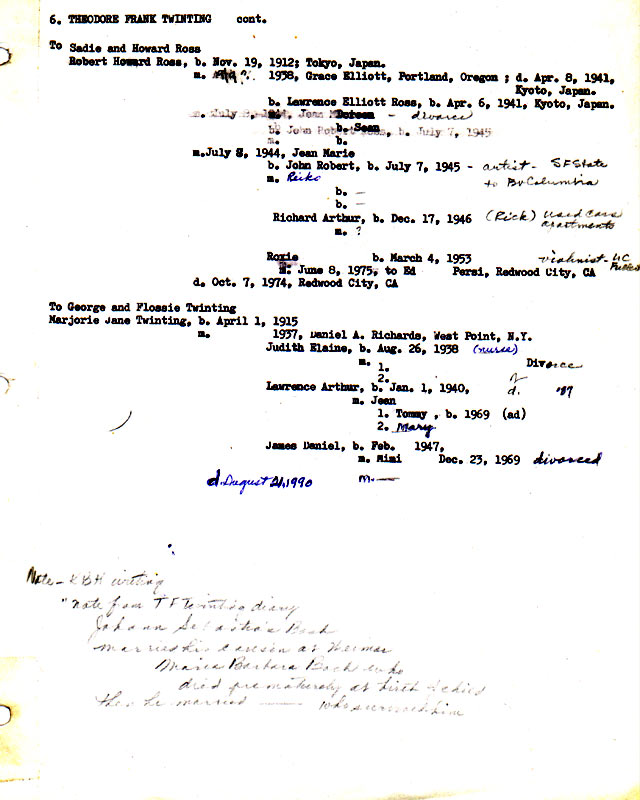 6. THEODORE FRANK TWINTING cont.
To Sadie and Howard Ross
Robert Howard Ross, b. Nov. 19, 1912; Tokyo, Japan.
m. 1938, Grace Elliott, Portland, Oregon ; d. Apr. 8, 1941,
Kyoto, Japan.
b. Lawrence Elliott Ross, b. Apr. 6, 1941, Kyoto, Japan.
m. July Jean Doreen - divorce
b. John Robert b. Sean b. July 7, 1945
m. b.
m.July 8, 1944, Jean Marie
b. John Robert, b. July 7, 1945 - artist - SFState
m. Reiko to Br Columbia
b. -
b. -
Richard Arthur, b. Dec. 17, 1946 (Rick) used cars
m. ? apartments
Roxie b. March 4, 1953 violinist - UC
m. June 8, 1975, to Ed Persi, Redwood City, CA
d. Oct. 7, 1974, Redwood City, CA
To George and Flossie Twinting
Marjorie Jane Twinting, b. April 1, 1915
m. 1937, Daniel A. Richards, West Point, N.Y.
Judith Elaine, b. Aug. 26, 1938 (nurse)
m. 1. Divorce
2.
Lawrence Arthur, b. Jan. 1, 1940, d. '87
m. Jean
1. Tommy , b. 1969 (ad)
2. Mary
James Daniel, b. Feb. 1947,
m. Mimi Dec. 23, 1969 divorced
d. August 21, 1990 m. —
Note - KBH writing
"note from TF Twinting diary
Johann Sebastian Bach
married his cousin at Weimar
Maria Barbara Bach who
died prematurely at birth of child
then he married — who survived him